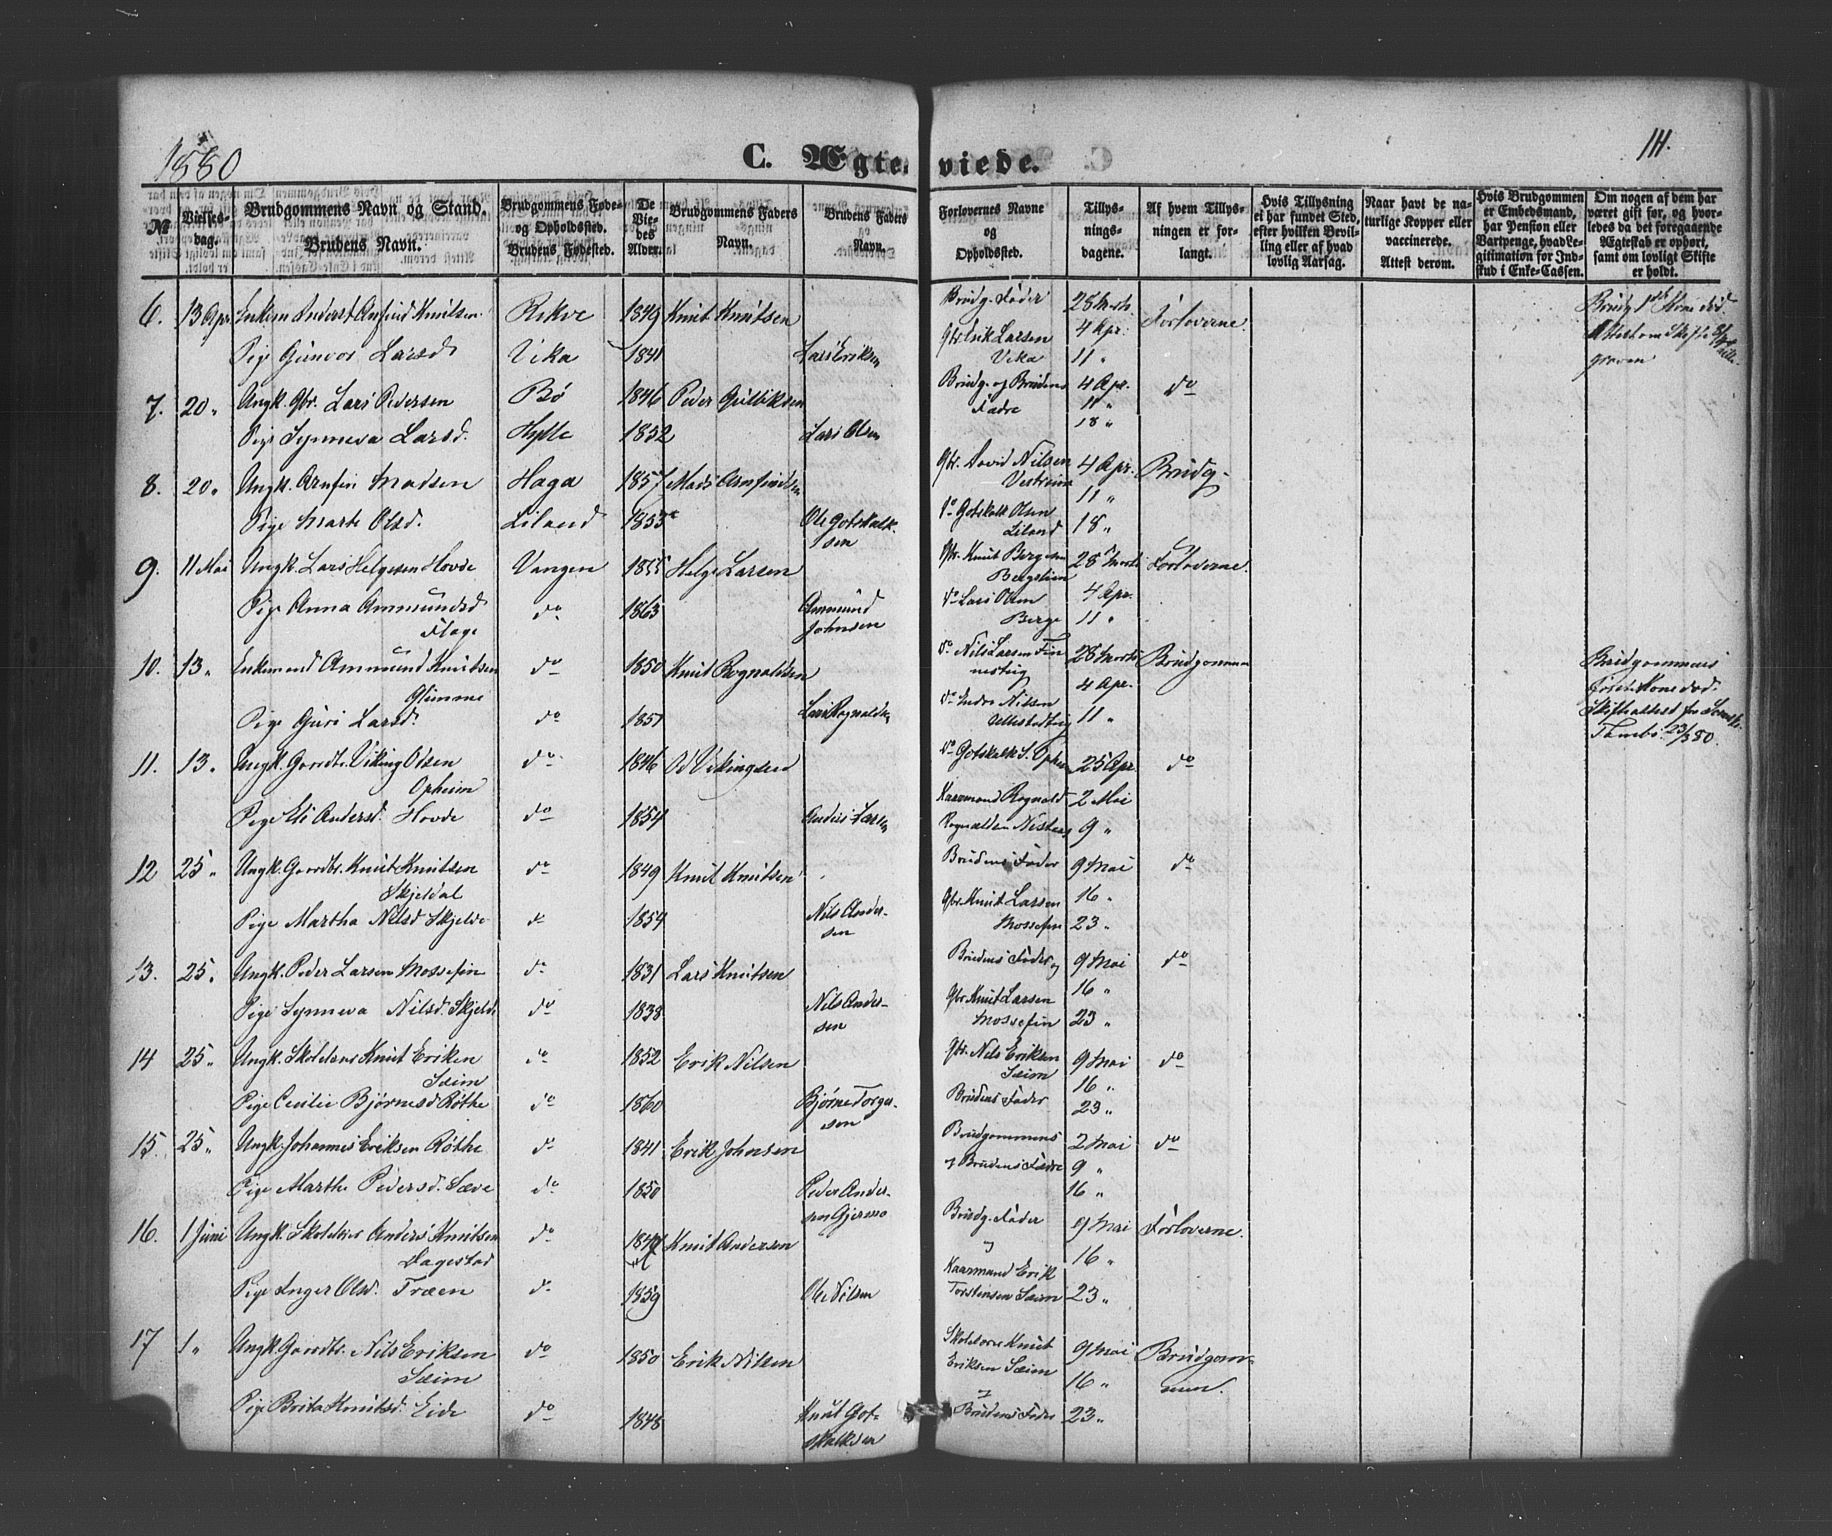 1880
C. Ægteviede.
111.
№
Vielses-
dag.
Brudgommens Navn og Stand.
Brudens Navn.
Brudgommens Føde-
og Opholdssted.
Brudens Fødested.
De
Vie-
des
Alder.
Brudgommens Faders
Navn.
Brudens Faders
Navn.
Forlovernes Navne
og
Opholdssted.
Tillys-
nings-
dagene.
Af hvem Tillys-
ningen er for-
langt.
Hvis Tillysning
ei har fundet Sted,
efter hvilken Bevil-
ling eller af hvad
lovlig Aarsag.
Naar havt de na-
turlige Kopper eller
vaccinerede.
Attest derom.
Hvis Brudgommen
er Embedsmand,
har Pension eller
Vartpenge, hvad Le-
gitimation for Ind-
skud i Enke-Cassen.
Om nogen af dem har
været gift før, og hvor-
ledes da det foregaaende
Ægteskab er ophørt,
samt om lovligt Skifte
er holdt.
6. 13 Apr Enkem Inderst Arnfind Knutsen Rekve 1849 Knut Knutsen Brudg. Fader 28 Marts Forloverne Brudg Kone død.
Gbr Erik Larsen 4 Apr. Attest om Skifte
Pige Gunvor Larsd Vika 1841 Lars Eriksen Vika 11 "
7. 20 " Ungk. Gbr. Lars Pedersen Bø 1846 Peder Gulliksen Brudg. og Brudens 4 Apr. do
Fædre 11 "
Pige Synneva Larsd. Hylle 1852 Lars Olsen 18 "
8. 20 " Ungk. Arnfin Madsen Haga 1857 Mads Arnfindsen Gbr. David Nilsen 4 Apr. Brudg.
11 "
Pige Marte Olsd. Liland 1853 Ole Gotskalk- do Gotskalk Olsen 18 "
sen Liland
9. 11 Mai Ungk. Lars Helgesen Hovde Vangen 1855 Helge Larsen Gbr. Knut Bergesen 28 Marts Forloverne.
Pige Anna Ammundsd do 1863 Ammund do Lars Olsen 4 Apr.
Flage Johnsen Berge 11 "
10. 13 " Enkemand Ammund Knutsen do 1850 Knut Rognaldsen do Nils Larsen Fin 28 Marts Brudgommen Brudgommens
Glimme nesteig 4 Apr. første Kone død.
Pige Guri Larsd. do 1851 Lars Rognalds. do Endre Nilsen 11 " Skifteattest fra
23/3 80.
11. 13 " Ungk. Gaardbr. Viking Odsen do 1846 Od Vikingsen do Gotskalk S. Opheim 25 Apr. do
Opheim
Kaarmand Rognald 2 Mai
Pige Eli Andersd. Hovde do 1854 Anders Larsen 9 "
12 25 " Ungk. Gaardbr. Knut Knutsen do 1849 Knut Knutsen Brudens Fader 9 Mai do
Skjeldal Gbr. Knut Larsen 16 "
Pige Martha Nilsd Skjelde do 1854 Nils Ander- Mossefin 23 "
sen
13. 25 " Ungk. Peder Larsen Mossefin do 1831 Lars Knutsen Brudens Fader og 9 Mai do
Pige Synneva Nilsd. Skjelde do 1838 Nils Ander- Gbr Knut Larsen 16 "
sen Mossefin 23 "
14 25 " Ungk. Skolelærer Knut Eriksen do 1852 Erik Nilsen Gbr. Nils Eriksen 9 Mai do
Sæim Sæim 16 "
Pige Cecilie Bjørnesd Røthe do 1860 Bjørne Torger- Brudens Fader 23 "
sen
15. 25 " Ungk. Johannes Eriksen Røthe do 1841 Erik Johnsen Brudgommens 2 Mai do
og Brudens Fædre 9 "
Pige Marthe Pedersd. Sæve do 1850 Peder Ander- 16 "
sen Gjerme
16. 1 Juni Ungk. Skolelærer Anders Knutsen do 1847 Knut Andersen Brudg. Fader 9 Mai Forloverne.
Dagestad og 16 "
Kaarmand Erik
Pige Inger Olsd. Træen do 1859 Ole Nilsen Torstensen Sæim 23 "
17 1 " Ungk. Gaardbr. Nils Eriksen do 1850 Erik Nilsen Skolelærer Knut 9 Mai Brudgom-
Sæim Eriksen Sæim 16 " men.
og
Pige Brita Knutsd. Eide do 1848 Knut Got- Brudens Fader 23 "
skalksen